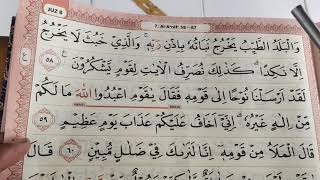 JUZ 8
7. Al-A'raf: 58 - 67
وَالْبَلَدُ الطَّيِّبُ يَخْرُجُ نَبَاتُهٗ بِاِذْنِ رَبِّهٖۚ وَالَّذِيْ خَبُثَ لَا يَخْرُجُ
اِلَّا نَكِدًاۗ كَذٰلِكَ نُصَرِّفُ الْاٰيٰتِ لِقَوْمٍ يَّشْكُرُوْنَ ٥٨
لَقَدْ اَرْسَلْنَا نُوْحًا اِلٰى قَوْمِهٖ فَقَالَ يٰقَوْمِ اعْبُدُوا اللّٰهَ مَا لَكُمْ
مِّنْ اِلٰهٍ غَيْرُهٗۗ اِنِّيْٓ اَخَافُ عَلَيْكُمْ عَذَابَ يَوْمٍ عَظِيْمٍ ٥٩
قَالَ الْمَلَاُ مِنْ قَوْمِهٖٓ اِنَّا لَنَرٰىكَ فِيْ ضَلٰلٍ مُّبِيْنٍ ٦٠ قَالَ